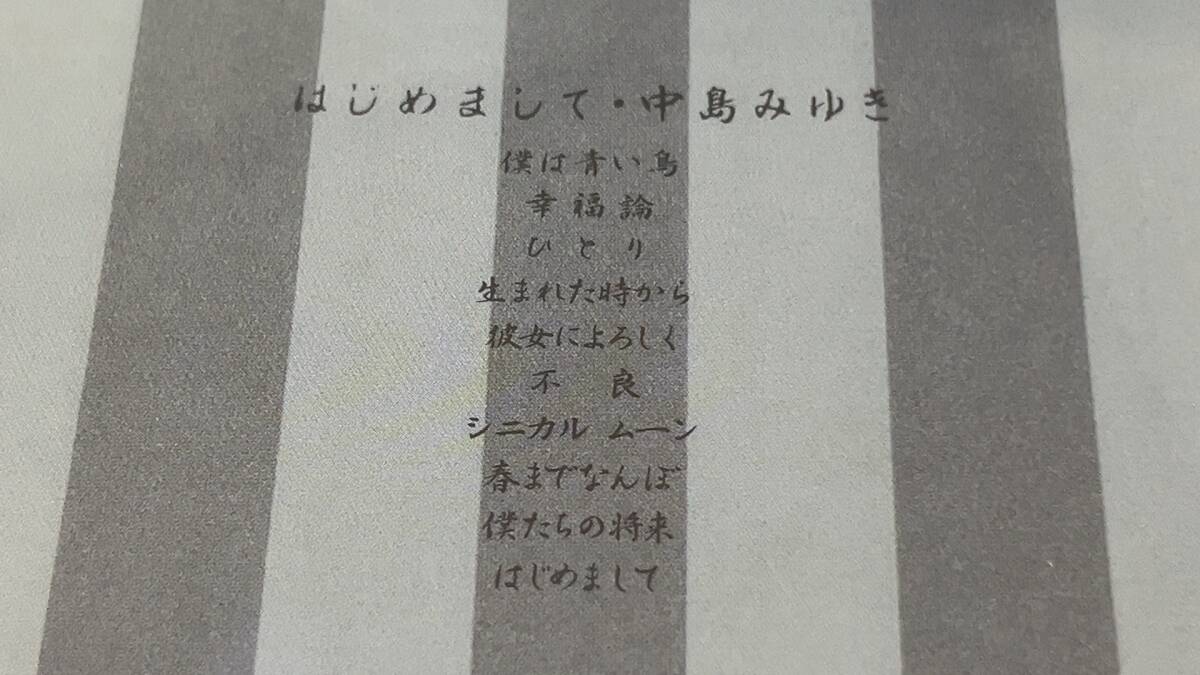 はじめまして・中島みゆき
僕は青い鳥
幸福論
ひとり
生まれた時から
彼女によろしく
不良
シニカル ムーン
春までなんぼ
僕たちの将来
はじめまして